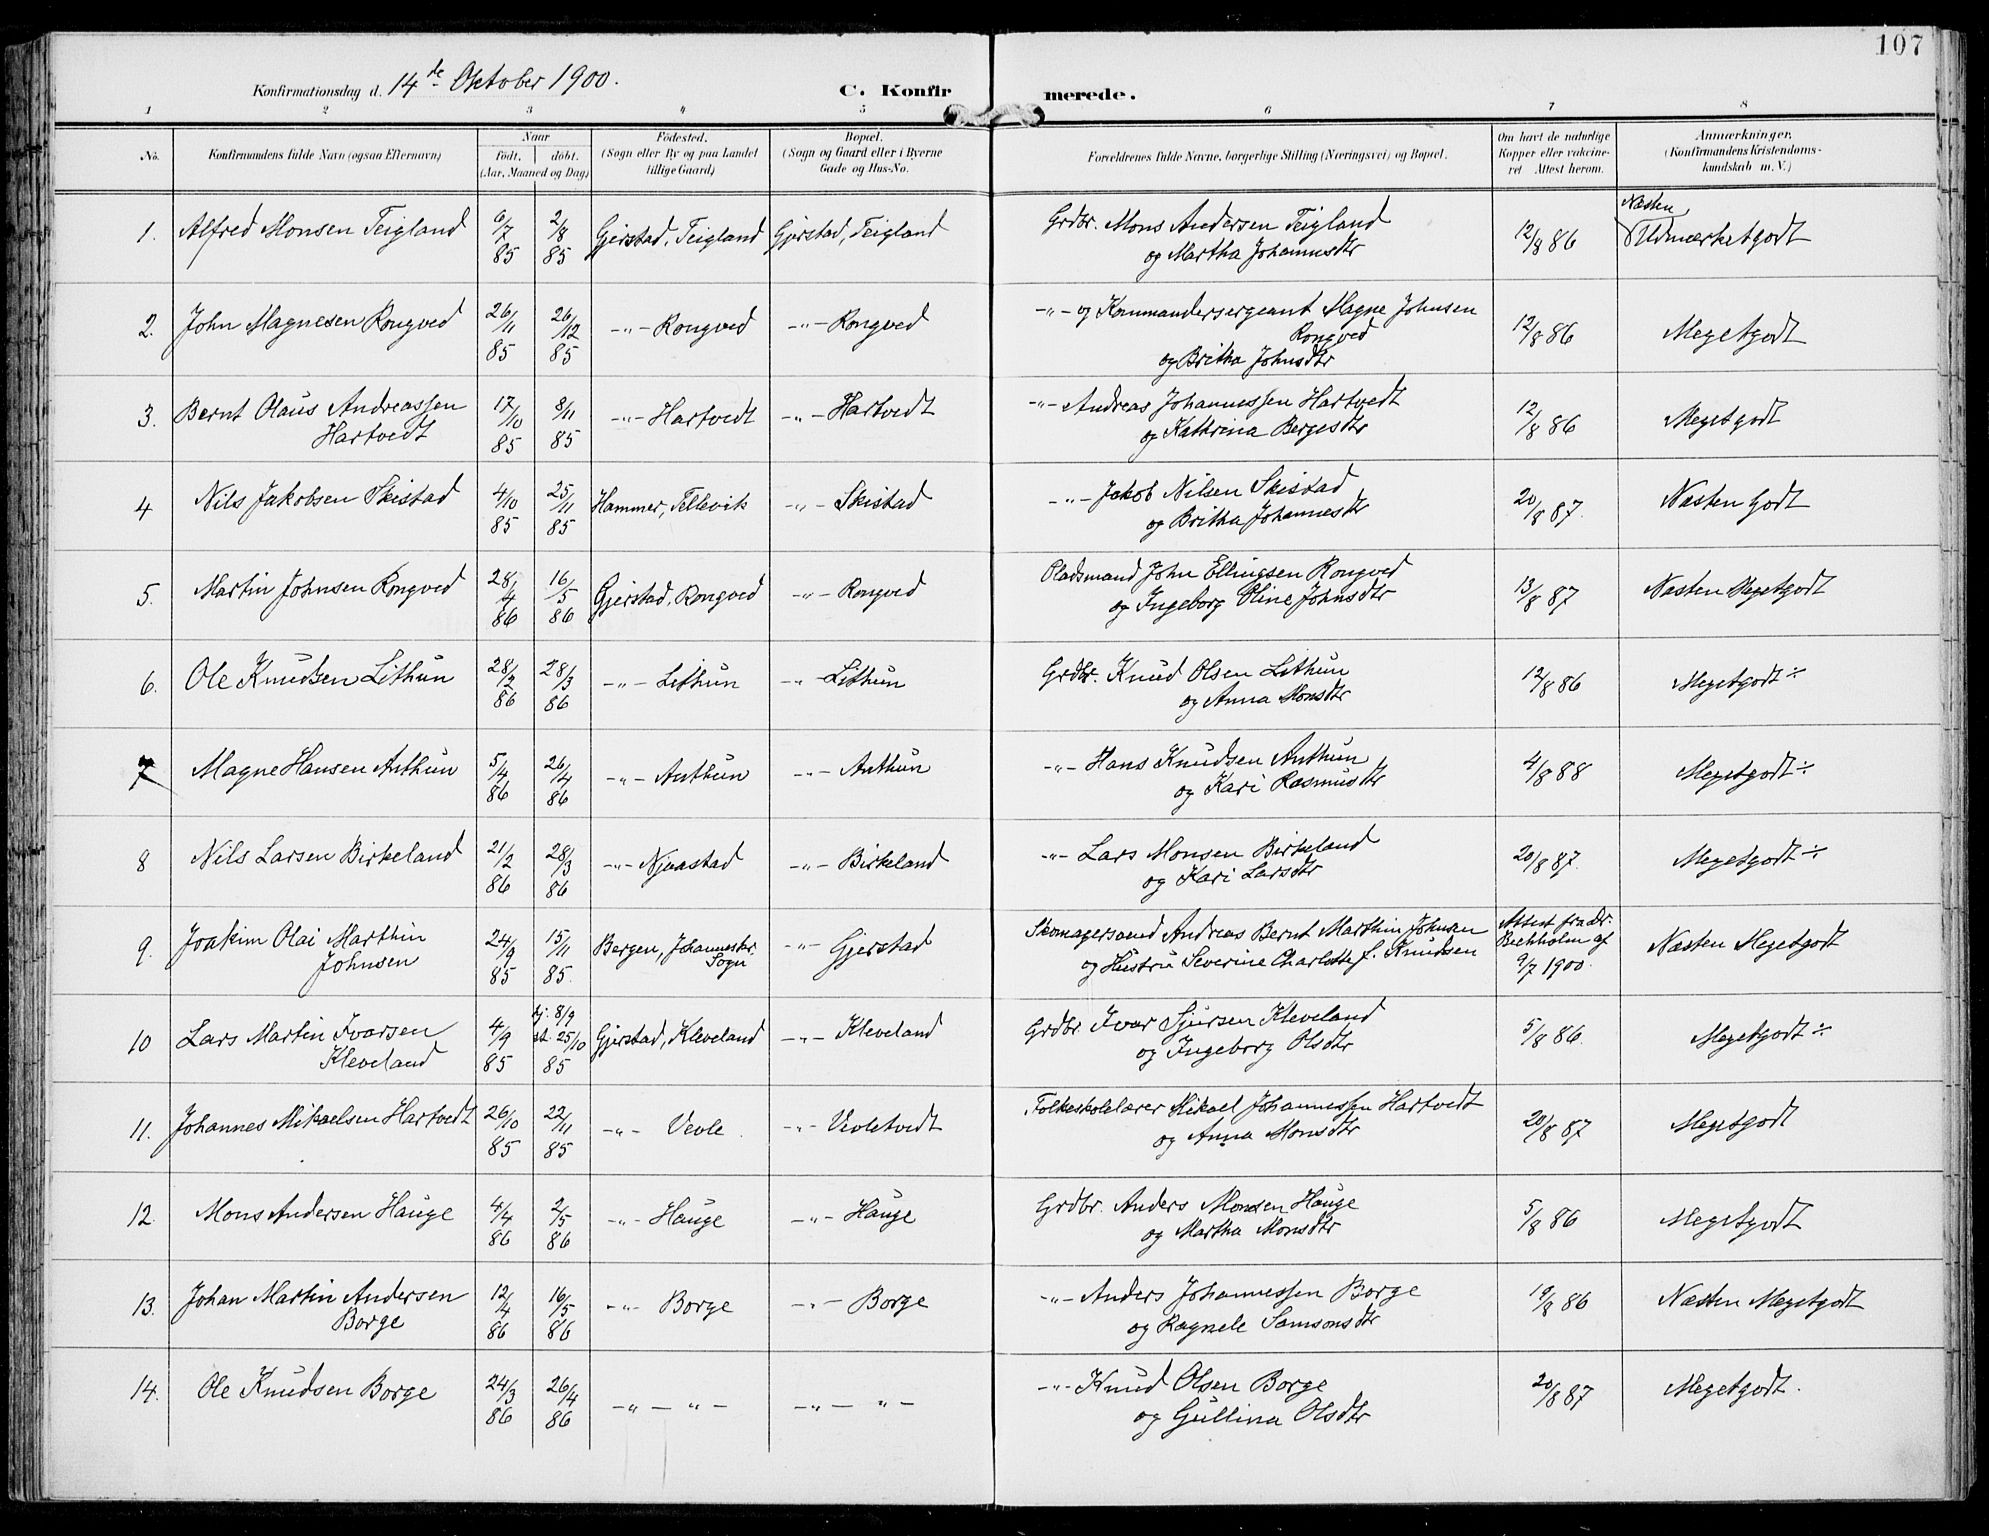 107
Konfirmationsdag d. 14de Oktober 1900.
C. Konfirmerede.
1 2 3 4 5 6 7 8
No. Konfirmandens fulde Navn (ogsaa Efternavn) Naar født. døbt. (Aar, Maaned og Dag) Fødested. (Sogn eller By og paa Landet tillige Gaard) Bopæl. (Sogn og Gaard eller i Byerne Gade og Hus-No. Forældrenes fulde Navne, borgerlige Stilling (Næringsvei) og Bopæl. Om havt de naturlige Kopper eller vakcineret Attest herom. Anmærkninger. (Konfirmandens Kristendomskundskab m. V.)
1. Alfred Monsen Teigland 6/7 85 2/8 85 Gjerstad, Teigland Gjerstad, Teigland Grdbr. Mons Andersen Teigland og Martha Johannesdtr 12/8 86 Næsten Udmærketgodt
2. John Magnesen Rongved 26/11 85 26/12 85 -"- Rongved -"- Rongved -"- og Kommandersergeant Magne Johnsen Rongved og Britha Johnsdtr 12/8 86 Megetgodt
3. Bernt Olaus Andreassen Hartvedt 17/10 85 8/11 85 -"- Hartvedt -"- Hartvedt -"- Andreas Johannessen Hartvedt og Kathrina Bergesdtr 12/8 86 Megetgodt
4 Nils Jakobsen Skistad 4/10 85 25/11 85 Hammer, Tellevik -"- Skistad -"- Jakob Nilsen Skistad og Britha Johannesdtr 20/8 87. Næsten Godt
5. Martin Johnsen Rongved 28/4 86 16/5 86 Gjerstad, Rongved -"- Rongved Pladsmand John Ellingsen Rongved og Ingeborg Oline Johnsdtr 13/8 87 Næsten Megetgodt
6. Ole Knudsen Lithun 28/2 86 28/3 86 -"- Lithun -"- Lithun Grdbr. Knud Olsen Lithun og Anna Monsdtr 12/8 86 Megetgodt ÷
7 Magne Hansen Anthun 5/4 86 26/4 86 -"- Anthun -"- Anthun -"- Hans Knudsen Anthun og Kari Rasmusdtr 4/8 88 Megetgodt ÷
8 Nils Larsen Birkeland 21/2 86 28/3 86 -"- Njaastad -"- Birkeland -"- Lars Monsen Birkeland og Kari Larsdtr 20/8 87. Megetgodt ÷
9. Joakim Olai Marthin Johnsen 24/9 85 15/11 85. Bergen, Johanneskr. Sogn -"- Gjerstad Skomagersvend Andreas Bernt Marthin Johnsen og Hustru Severine Charlotte f. Knudsen Attest fra dr. af 9/7 1900. Næsten Megetgodt
10 Lars Martin Ivarsen Kleveland 4/9 85 hj. 8/9 st. 25/10 85 Gjerstad, Kleveland -"- Kleveland Grdbr Ivar Sjursen Kleveland og Ingeborg Olsdtr 5/8 86. Megetgodt ÷
11. Johannes Mikaelsen Hartvedt 26/10 85 22/11 85 -"- Vevle -"- Vevletvedt Folkeskolelærer Mikael Johannessen Hartvedt og Anna Monsdtr 20/8 87 Megetgodt
12. Mons Andersen Hauge 4/4 86 2/5 86 -"- Hauge -"- Hauge Grdbr. Anders Monsen Hauge og Martha Monsdtr 5/8 86 Megetgodt
13. Johan Martin Andersen Borge 12/4 86 16/5 86 -"- Borge -"- Borge -"- Anders Johannessen Borge og Ragnele Samsonsdtr 19/8 86 Næsten Megetgodt
14. Ole Knudsen Borge 24/3 86 26/4 86 -"- "- -"- "- -"- Knud Olsen Borge og Gullina Olsdtr 20/8 87 Megetgodt.